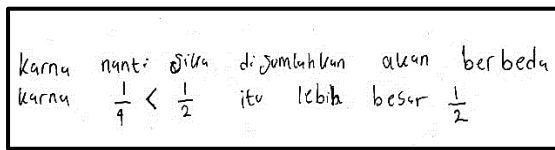 karna nanti jika dijumlahkan akan berbeda
karna 1/4 < 1/2 itu lebih besar 1/2